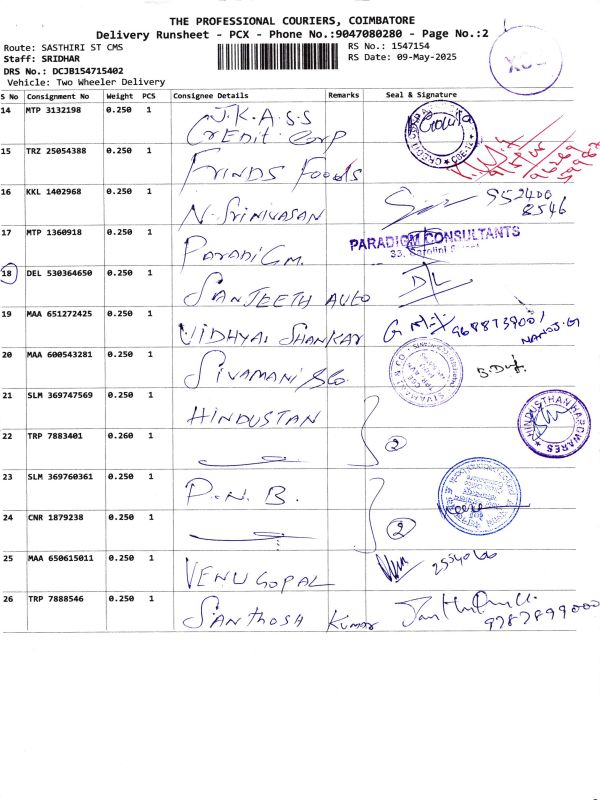 THE PROFESSIONAL COURIERS, COIMBATORE
Delivery Runsheet - PCX - Phone No.:9047080280 - Page No.:2
Route: SASTHIRI ST CMS RS No.: 1547154
Staff: SRIDHAR RS Date: 09-May-2025
DRS No.: DCJB154715402
Vehicle: Two Wheeler Delivery
S No Consignment No Weight PCS Consignee Details Remarks Seal & Signature
14 MTP 3132198 0.250 1 J.K.A.S.S
CREDIT CORP
15 TRZ 25054388 0.250 1 FRINDS FOODS
16 KKL 1402968 0.250 1 N. SRINIVASAN 952400
8546
17 MTP 1360918 0.250 1 PARADIGM. PARADIGM CONSULTANTS
18 DEL 530364650 0.250 1 SANJEETH AUTO
19 MAA 651272425 0.250 1 VIDHYA SHANKAR 9688739001
MANOJ.G
20 MAA 600543281 0.250 1 SIVAMANI & Co. SIVAMANI & CO
21 SLM 369747569 0.250 1 HINDUSTAN HINDUSTHAN HARDWARES
22 TRP 7883401 0.260 1 2
23 SLM 369760361 0.250 1 P.N.B.
24 CNR 1879238 0.250 1 2
25 MAA 650615011 0.250 1 VENUGOPAL
26 TRP 7888546 0.250 1 SANTHOSH KUMAR
9787899000